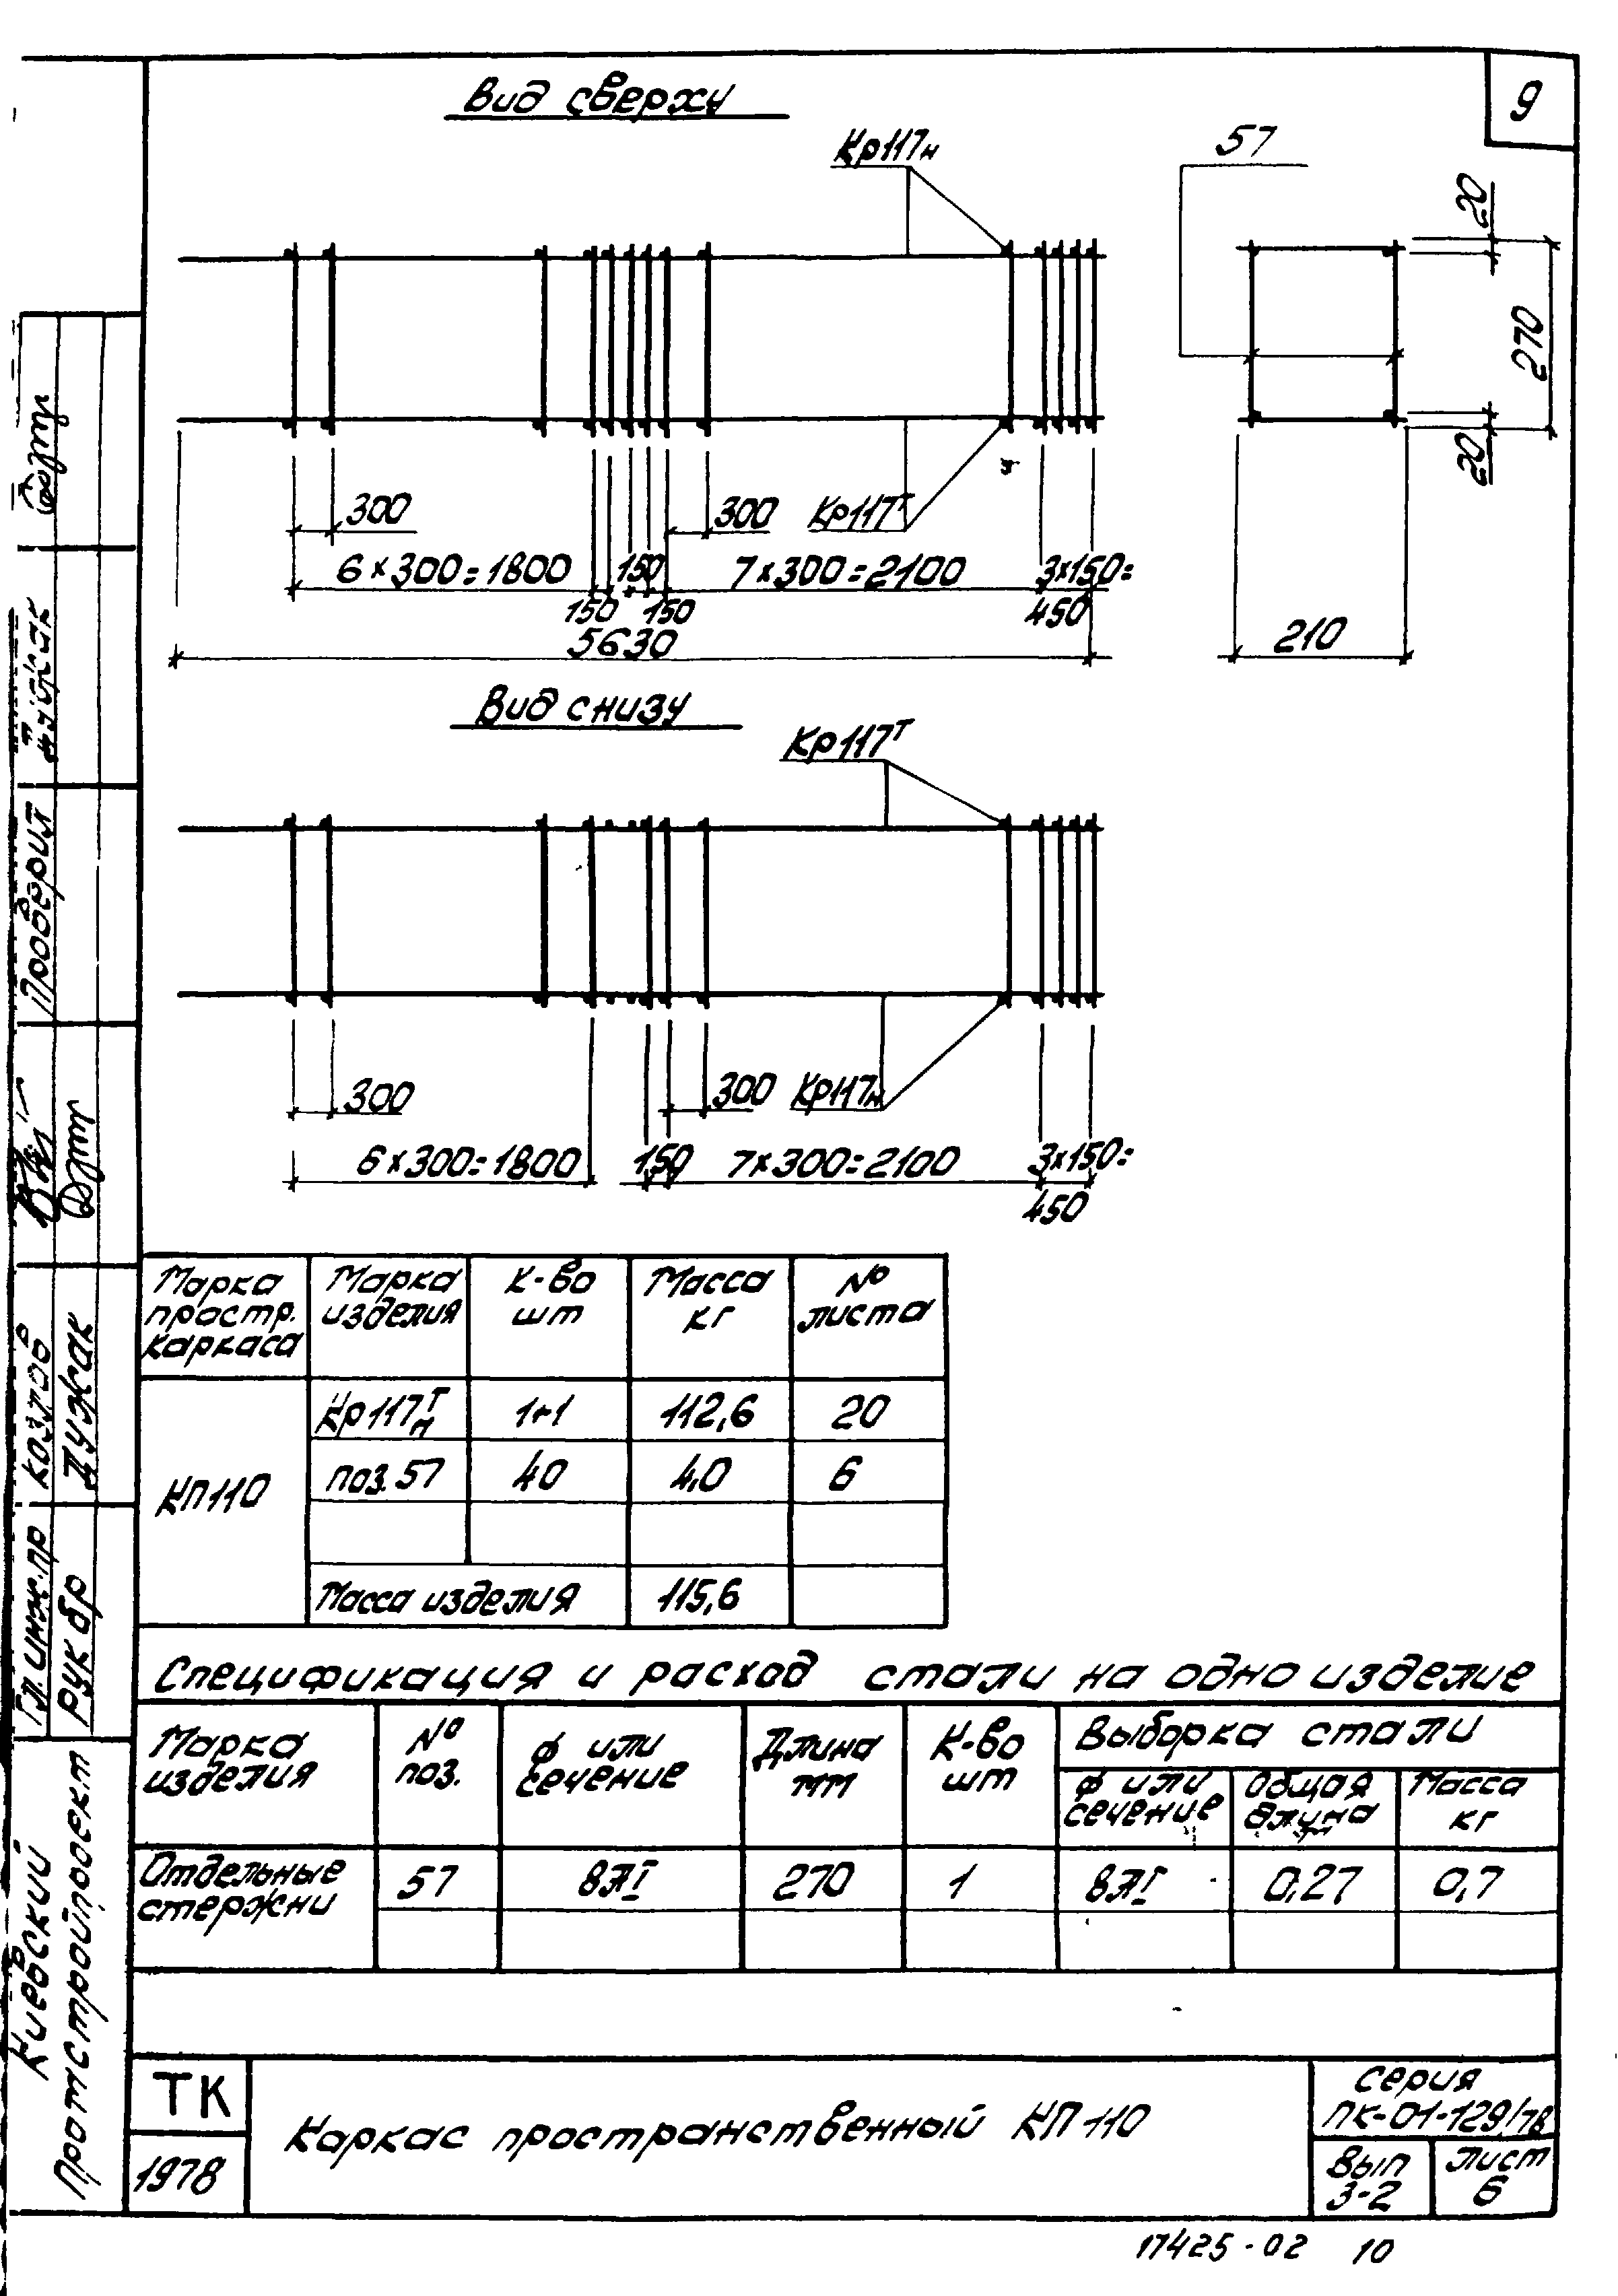 9
Вид сверху
Кр117н
57
20
270
20
300
300
Кр117т
6×300=1800
150
7×300=2100
3×150=
450
150
150
5630
210
Вид снизу
Кр117т
300
300
Кр117н
6×300=1800
150
7×300=2100
3×150=
450
Марка простр. каркаса
Марка изделия
К-во шт
Масса кг
№ листа
КП110
Кр117т н
1+1
112,6
20
поз. 57
40
4,0
6
Масса изделия
115,6
Спецификация и расход стали на одно изделие
Марка изделия
№ поз.
ф или сечение
Длина мм
К-во шт
Выборка стали
ф или сечение
Общая длина
Масса кг
Отдельные стержни
57
8АI
270
1
8АI
0,27
0,7
ТК
1978
Каркас пространственный КП110
серия
ПК-01-129/78
Вып
3-2
лист
6
17425-02 10
Киевский
Промстройпроект
Гл. инж. пр
Козлов
Рук бр
Лужак
Проверил